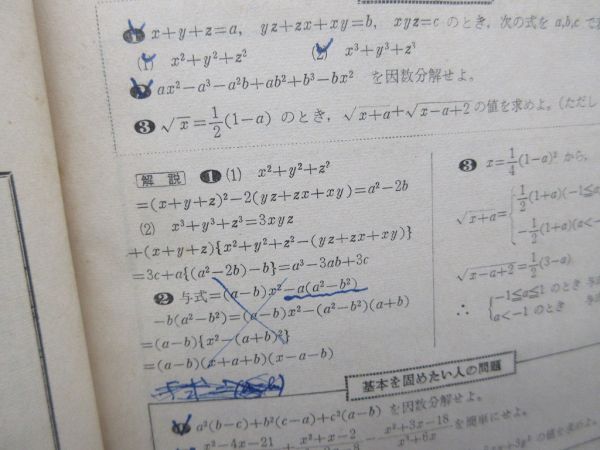 ❶ x+y+z=a, yz+zx+xy=b, xyz=c のとき, 次の式を a,b,c で
(1) x²+y²+z² (2) x³+y³+z³
❷ ax²−a³−a²b+ab²+b³−bx² を因数分解せよ。
❸ √x=1/2(1−a) のとき, √x+a+√x−a+2 の値を求めよ。(ただし
解説 ❶ (1) x²+y²+z²
=(x+y+z)²−2(yz+zx+xy)=a²−2b
(2) x³+y³+z³=3xyz
+(x+y+z){x²+y²+z²−(yz+zx+xy)}
=3c+a{(a²−2b)−b}=a³−3ab+3c
❷ 与式=(a−b)x²−a(a²−b²)
−b(a²−b²)=(a−b)x²−(a²−b²)(a+b)
=(a−b){x²−(a+b)²}
=(a−b)(x+a+b)(x−a−b)
❸ x=1/4(1−a)² から,
√x+a={1/2(1+a)(−1≦a
−1/2(1+a)(a<−
√x−a+2=1/2(3−a)
∴ {−1≦a≦1 のとき 与
a<−1 のとき 与式
基本を固めたい人の問題
a²(b−c)+b²(c−a)+c²(a−b) を因数分解せよ。
x²−4x−21 + x²+x−2 − x²+3x−18 を簡単にせよ。
x³+6x
の値を求めよ。